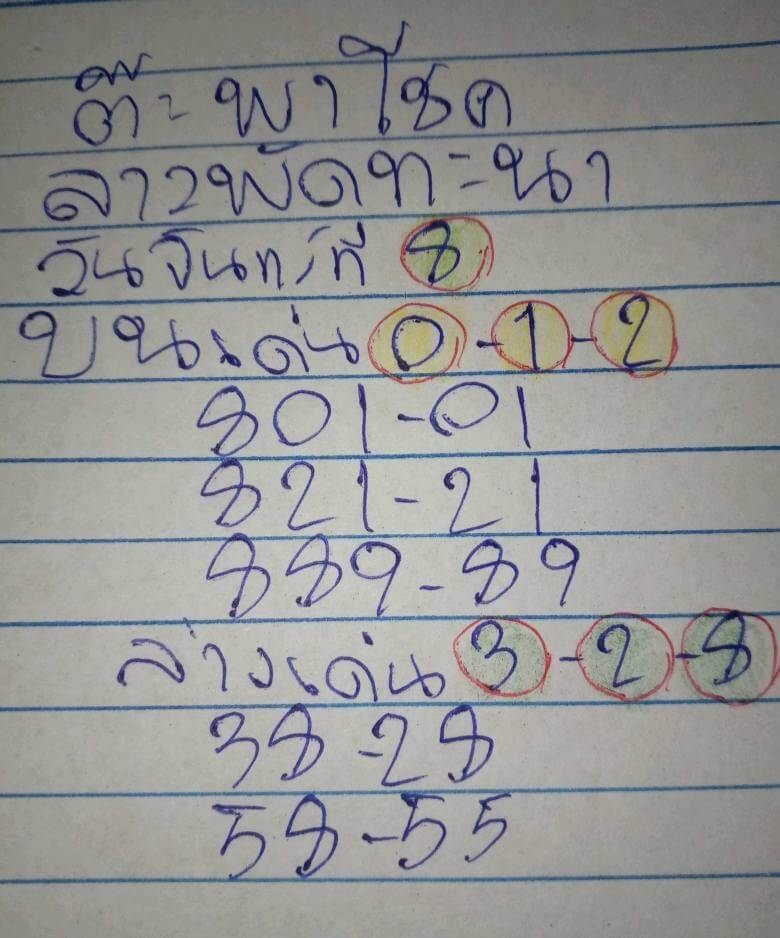 ต๊ะพาโชค
ลาวพัดทะนา
วันจันทร์ที่ 8
บนเด่น 0-1-2
801-01
821-21
889-89
ล่างเด่น 3-2-8
38-28
58-55